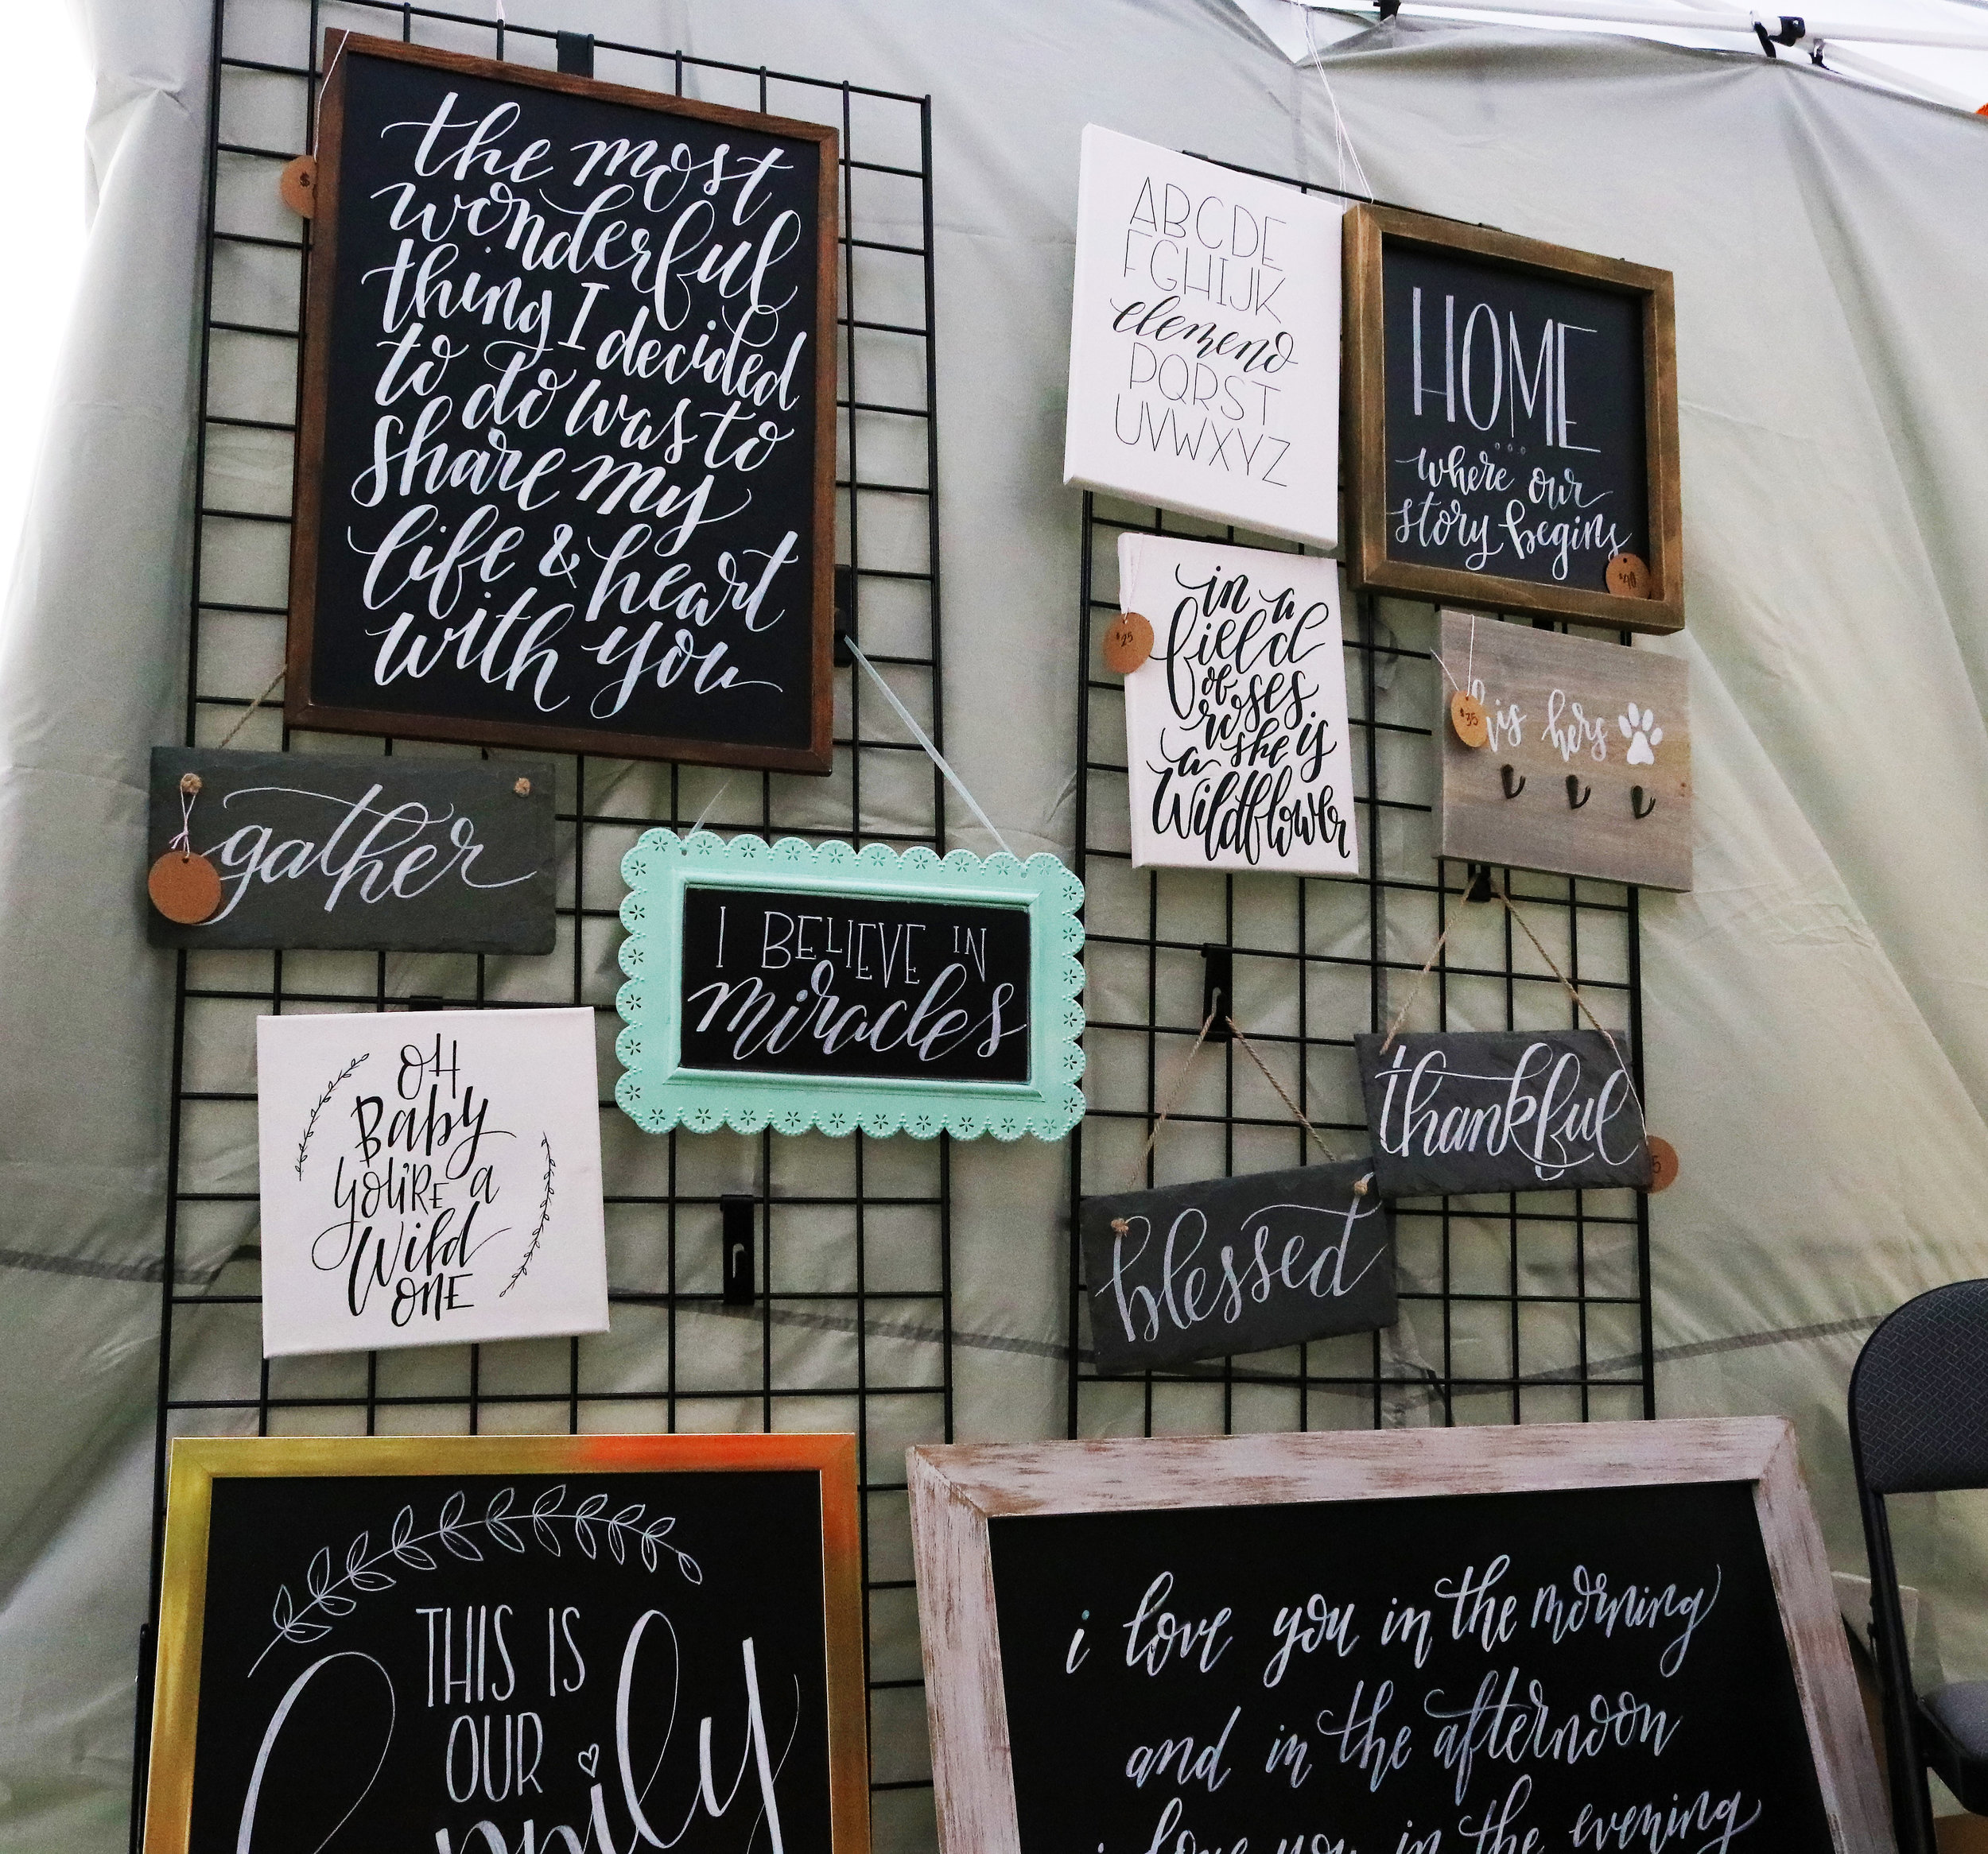 the most
wonderful
thing I decided
to do was to
share my
life & heart
with you
$
ABCDE
FGHIJK
elemeno
PQRST
UVWXYZ
HOME
where our
story begins
$40
in a
field
of
roses
she is
a
wildflower
$25
his hers
$35
gather
I BELIEVE IN
miracles
thankful
5
blessed
OH
Baby
YOU'RE a
Wild
ONE
THIS IS
OUR
i love you in the morning
and in the afternoon
i love you in the evening